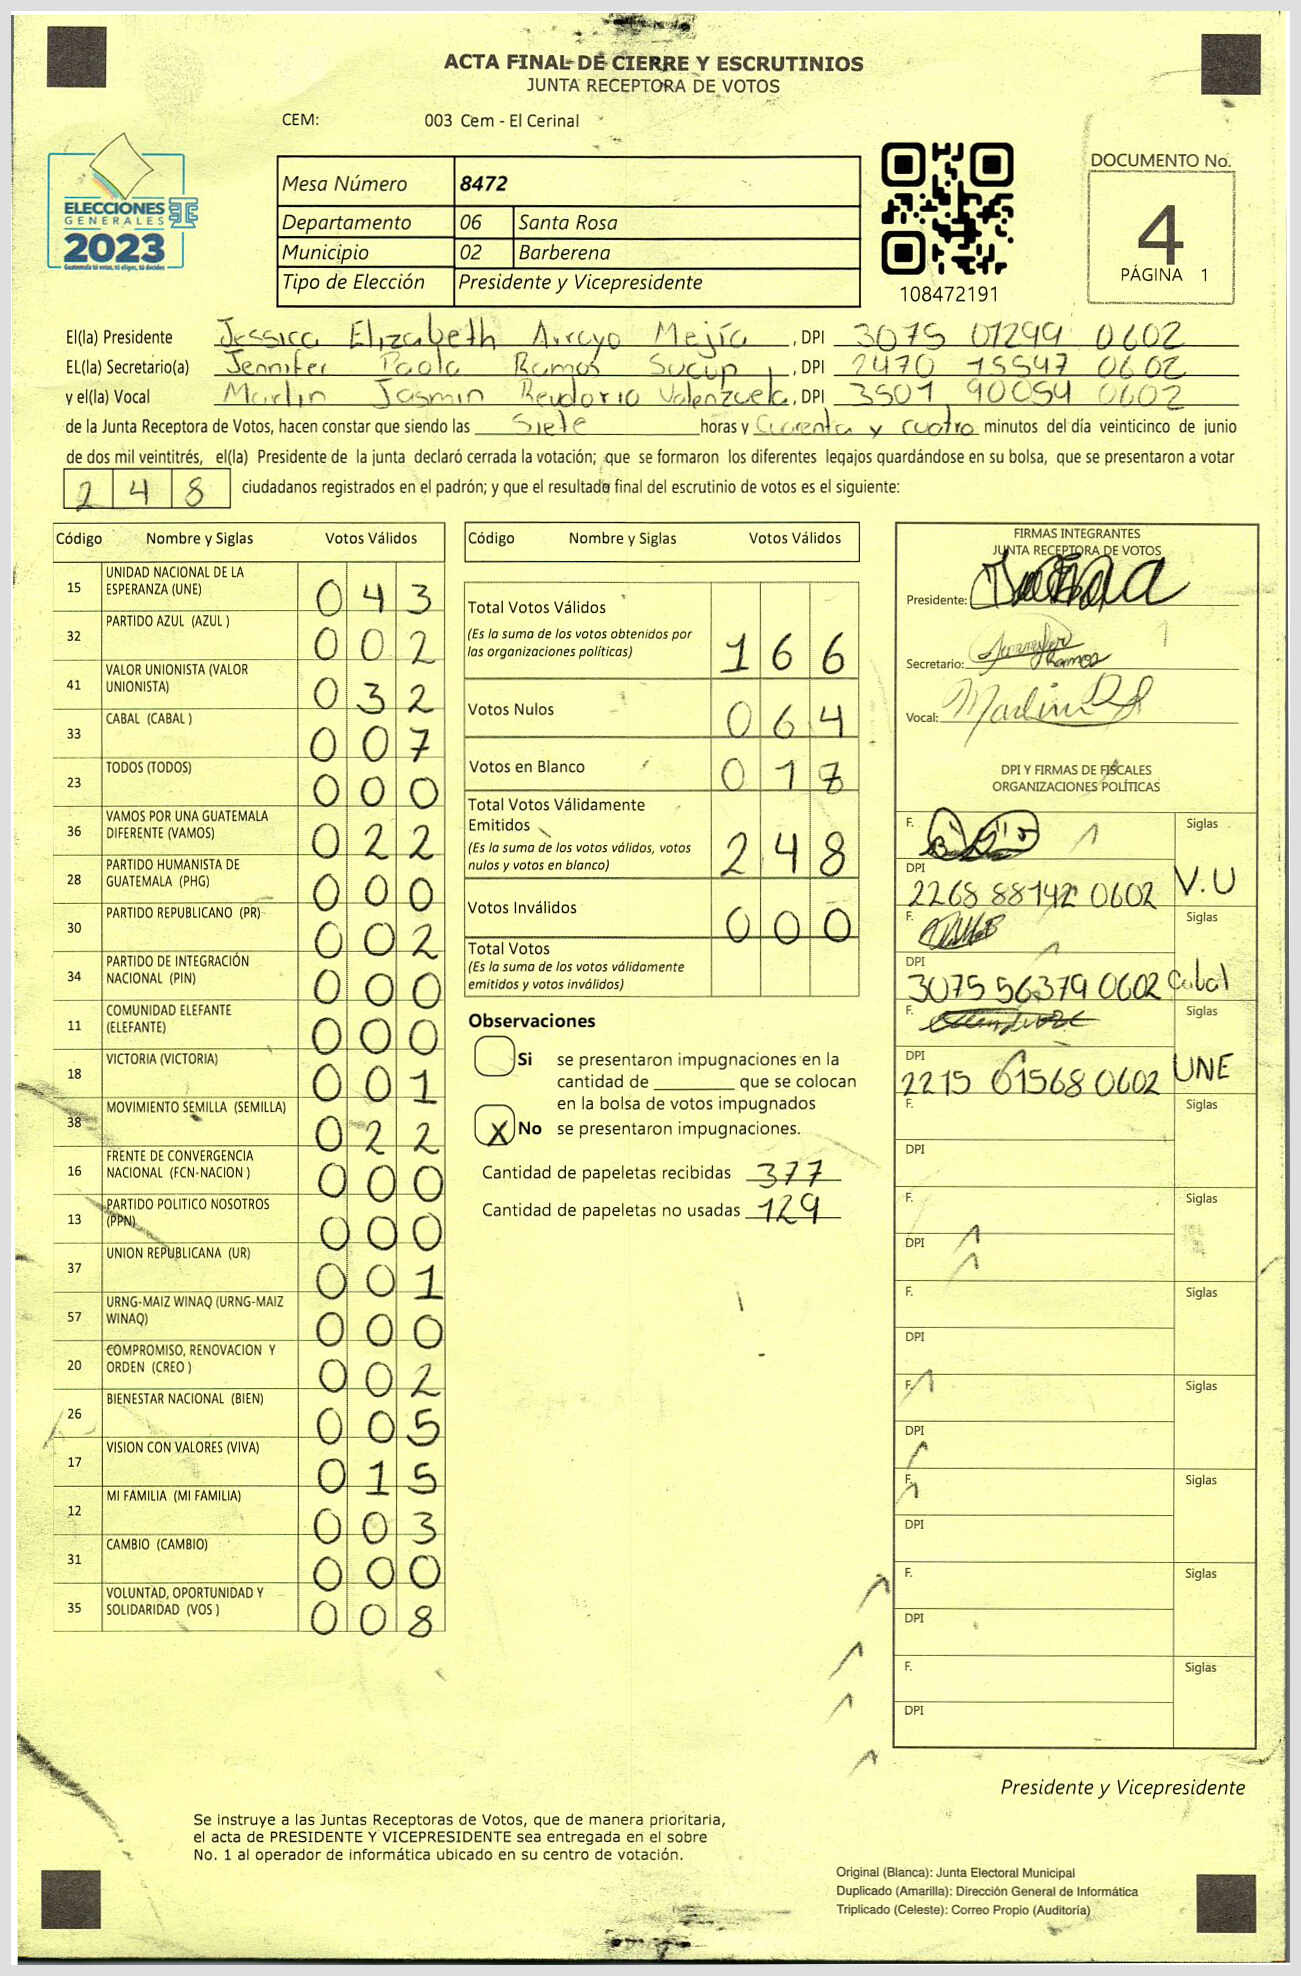 ACTA FINAL DE CIERRE Y ESCRUTINIOS
JUNTA RECEPTORA DE VOTOS
CEM: 003 Cem - El Cerinal
ELECCIONES
GENERALES
2023
Guatemala tú votas, tú eliges, tú decides
Mesa Número 8472
Departamento 06 Santa Rosa
Municipio 02 Barberena
Tipo de Elección Presidente y Vicepresidente
108472191
DOCUMENTO No.
4
PÁGINA 1
El(la) Presidente Jessica Elizabeth Arroyo Mejía, DPI 3075 01299 0602
EL(la) Secretario(a) Jennifer Paola Ramos Sucup, DPI 2470 15547 0602
y el(la) Vocal Marlin Jasmin Revdorio Valenzuela, DPI 3501 90054 0602
de la Junta Receptora de Votos, hacen constar que siendo las Siete horas y Cuarenta y cuatro minutos del día veinticinco de junio
de dos mil veintitrés, el(la) Presidente de la junta declaró cerrada la votación; que se formaron los diferentes legajos quardándose en su bolsa, que se presentaron a votar
248 ciudadanos registrados en el padrón; y que el resultado final del escrutinio de votos es el siguiente:
Código Nombre y Siglas Votos Válidos
15 UNIDAD NACIONAL DE LA
ESPERANZA (UNE) 043
32 PARTIDO AZUL (AZUL ) 002
41 VALOR UNIONISTA (VALOR
UNIONISTA) 032
33 CABAL (CABAL ) 007
23 TODOS (TODOS) 000
36 VAMOS POR UNA GUATEMALA
DIFERENTE (VAMOS) 022
28 PARTIDO HUMANISTA DE
GUATEMALA (PHG) 000
30 PARTIDO REPUBLICANO (PR) 002
34 PARTIDO DE INTEGRACIÓN
NACIONAL (PIN) 000
11 COMUNIDAD ELEFANTE
(ELEFANTE) 000
18 VICTORIA (VICTORIA) 001
38 MOVIMIENTO SEMILLA (SEMILLA) 022
16 FRENTE DE CONVERGENCIA
NACIONAL (FCN-NACION ) 000
13 PARTIDO POLITICO NOSOTROS
(PPN) 000
37 UNION REPUBLICANA (UR) 001
57 URNG-MAIZ WINAQ (URNG-MAIZ
WINAQ) 000
20 COMPROMISO, RENOVACION Y
ORDEN (CREO ) 002
26 BIENESTAR NACIONAL (BIEN) 005
17 VISION CON VALORES (VIVA) 015
12 MI FAMILIA (MI FAMILIA) 003
31 CAMBIO (CAMBIO) 000
35 VOLUNTAD, OPORTUNIDAD Y
SOLIDARIDAD (VOS ) 008
Código Nombre y Siglas Votos Válidos
Total Votos Válidos
(Es la suma de los votos obtenidos por
las organizaciones políticas) 166
Votos Nulos 064
Votos en Blanco 018
Total Votos Válidamente
Emitidos
(Es la suma de los votos válidos, votos
nulos y votos en blanco) 248
Votos Inválidos 000
Total Votos
(Es la suma de los votos válidamente
emitidos y votos inválidos)
Observaciones
Si se presentaron impugnaciones en la
cantidad de ________ que se colocan
en la bolsa de votos impugnados
X No se presentaron impugnaciones.
Cantidad de papeletas recibidas 377
Cantidad de papeletas no usadas 129
FIRMAS INTEGRANTES
JUNTA RECEPTORA DE VOTOS
Presidente:
Secretario: Jennifer
Ramos
Vocal: Marlin
DPI Y FIRMAS DE FISCALES
ORGANIZACIONES POLÍTICAS
F. Siglas
DPI
2268 88142 0602 V.U
F. Siglas
DPI
3075 56379 0602 Cabal
F. Siglas
DPI
2215 61568 0602 UNE
F. Siglas
DPI
F. Siglas
DPI
F. Siglas
DPI
F. Siglas
DPI
F. Siglas
DPI
F. Siglas
DPI
F. Siglas
DPI
Presidente y Vicepresidente
Se instruye a las Juntas Receptoras de Votos, que de manera prioritaria,
el acta de PRESIDENTE Y VICEPRESIDENTE sea entregada en el sobre
No. 1 al operador de informática ubicado en su centro de votación.
Original (Blanca): Junta Electoral Municipal
Duplicado (Amarilla): Dirección General de Informática
Triplicado (Celeste): Correo Propio (Auditoría)